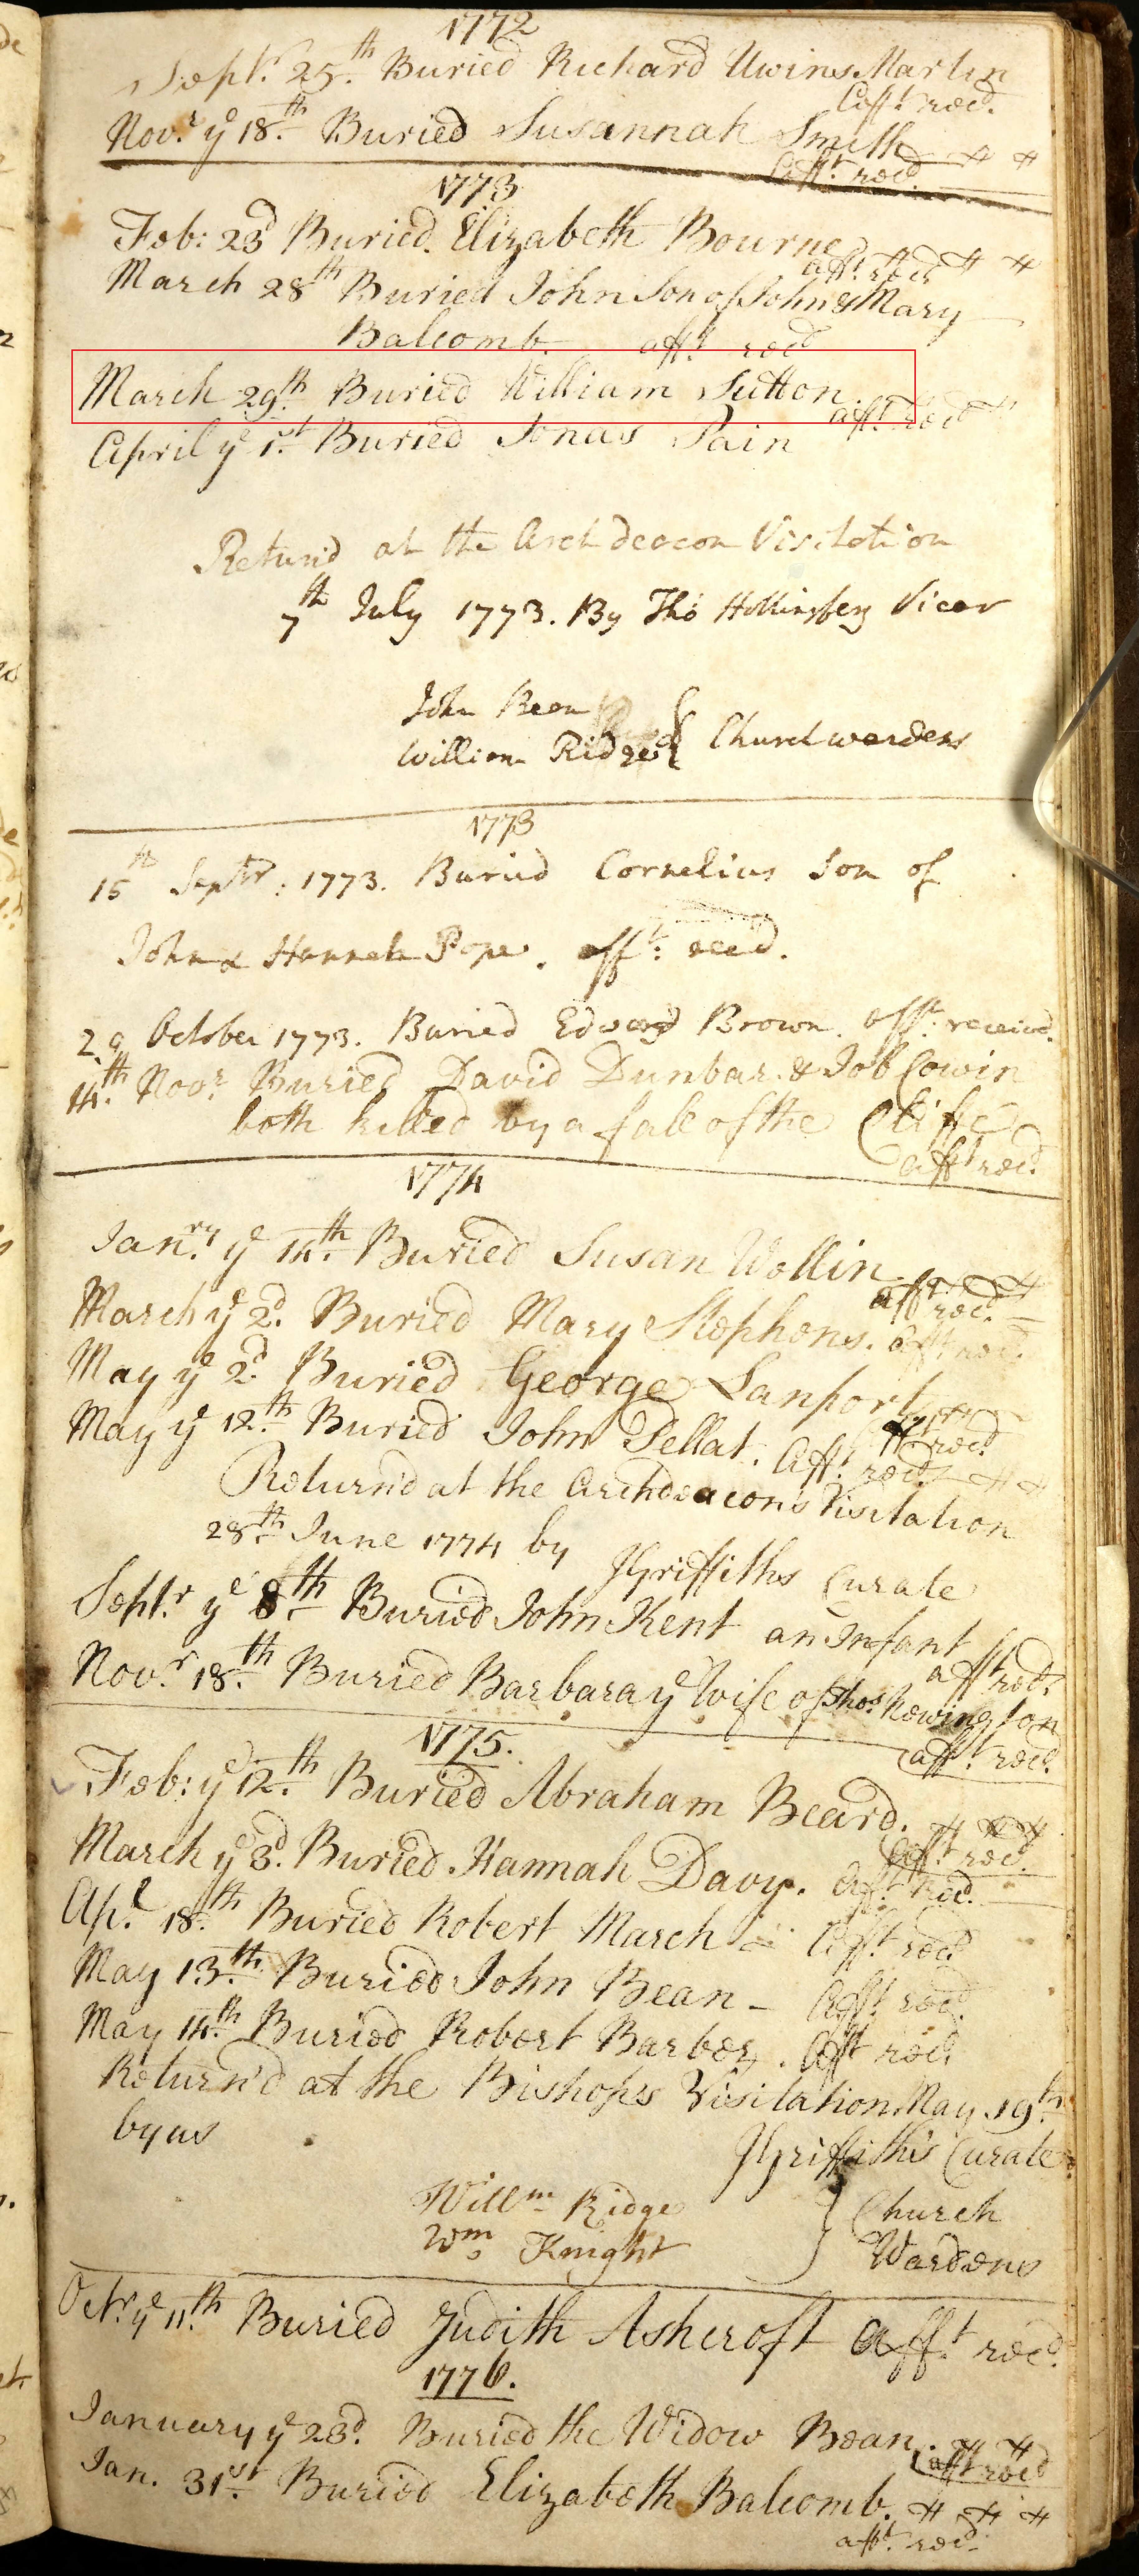 1772
Sept.r 25.th Buried Richard Uwins Martin
Aff.t recd.
Nov.r ye 18.th Buried Susannah Smith
Aff.t recd.
1773
Feb: 23d Buried Elizabeth Bourne
aff.t recd
March 28th Buried John Son of John & Mary
Balcomb. aff.t recd
March 29.th Buried William Sutton.
aff.t recd
April ye 1.st Buried Jonas Pain
Return'd at the Archdeacon Visitation
7th July 1773. By Tho Hollingbery Vicar
John Bean
William Ridge } Churchwardens
1773
15th Septr: 1773. Buried Cornelius Son of
John & Hannah Pope. aff.t recd.
29 October 1773. Buried Edward Brown. aff.t received.
14.th Nov.r Buried David Dunbar & Job Cowin
both killed by a fall of the Cliffe
aff.t recd.
1774
Jan.ry ye 14.th Buried Susan Wollin
aff.t recd.
March ye 2.d Buried Mary Stephens. aff.t recd.
May ye 2.d Buried George Lanport
aff.t recd
May ye 12.th Buried John Pellat. Aff.t recd.
Return'd at the Archdeacon's Visitation
28th June 1774 by JGriffiths Curate
Sept.r ye 8.th Buried John Kent an Infant
aff.t recd.
Nov.r 18.th Buried Barbara ye Wife of Tho.s Newington
aff.t recd.
1775.
Feb: ye 12.th Buried Abraham Beard.
Aff.t recd.
March ye 3.d Buried Hannah Davy. Aff.t recd.
Ap.l 18.th Buried Robert March Aff.t recd.
May 13.th Buried John Bean - Aff.t recd.
May 14.th Buried Robert Barber. Aff.t recd.
Return'd at the Bishop's Visitation May 19th
by us JGriffiths Curate
Will.m Ridge } Church
Wm Knight Wardens
Oct.r ye 11.th Buried Judith Ashcroft Aff.t recd.
1776.
January ye 23d. Buried the Widow Bean.
aff.t recd
Jan. 31st. Buried Elizabeth Balcomb.
aff.t recd.